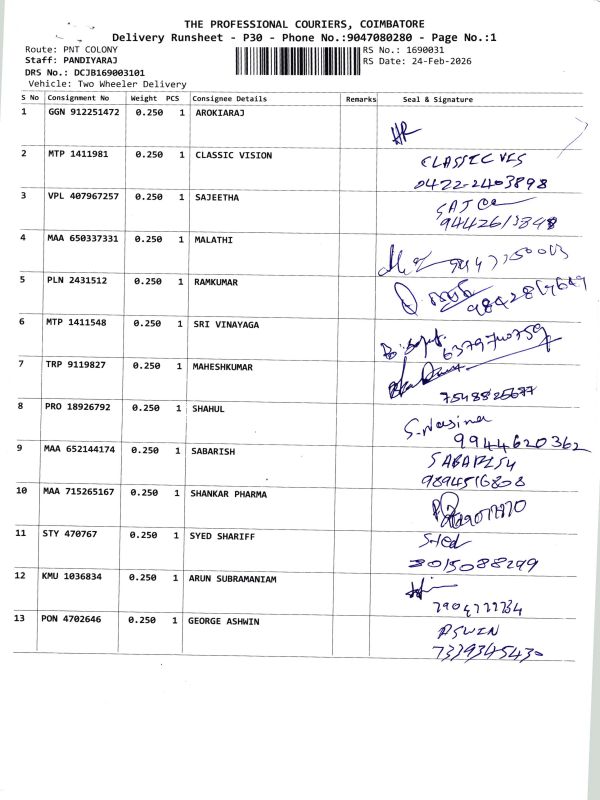 THE PROFESSIONAL COURIERS, COIMBATORE
Delivery Runsheet - P30 - Phone No.:9047080280 - Page No.:1
Route: PNT COLONY RS No.: 1690031
Staff: PANDIYARAJ RS Date: 24-Feb-2026
DRS No.: DCJB169003101
Vehicle: Two Wheeler Delivery
S No Consignment No Weight PCS Consignee Details Remarks Seal & Signature
1 GGN 912251472 0.250 1 AROKIARAJ
2 MTP 1411981 0.250 1 CLASSIC VISION
CLASSIC VIS
0422-2403898
3 VPL 407967257 0.250 1 SAJEETHA
4 MAA 650337331 0.250 1 MALATHI
5 PLN 2431512 0.250 1 RAMKUMAR
6 MTP 1411548 0.250 1 SRI VINAYAGA
7 TRP 9119827 0.250 1 MAHESHKUMAR
8 PRO 18926792 0.250 1 SHAHUL
S.Nasina
9944620362
9 MAA 652144174 0.250 1 SABARISH
9894516808
10 MAA 715265167 0.250 1 SHANKAR PHARMA
11 STY 470767 0.250 1 SYED SHARIFF
Syed
8015088299
12 KMU 1036834 0.250 1 ARUN SUBRAMANIAM
13 PON 4702646 0.250 1 GEORGE ASHWIN
ASWIN
7339345430